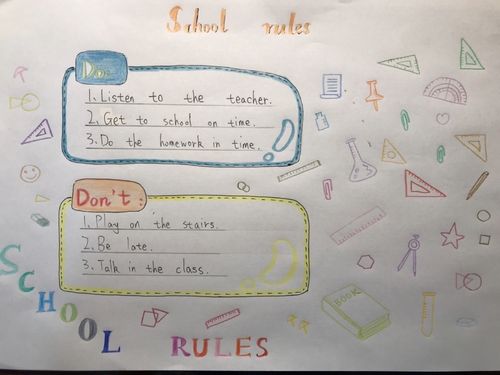 School rules
Do:
1. Listen to the teacher.
2. Get to school on time.
3. Do the homework in time.
Don't:
1. Play on the stairs.
2. Be late.
3. Talk in the class.
BOOK
SCHOOL
RULES